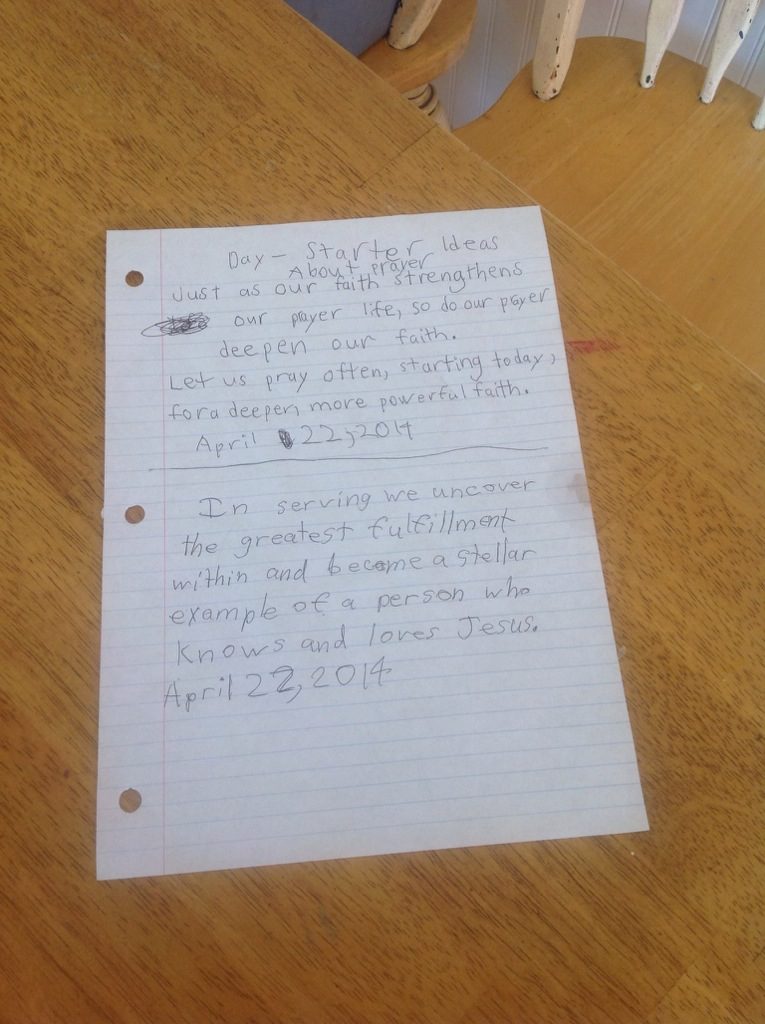 Day - Starter Ideas
About prayer
Just as our faith strengthens
our prayer life, so do our prayer
deepen our faith.
Let us pray often, starting today,
for a deeper, more powerful faith.
April 22, 2014
In serving we uncover
the greatest fulfillment
within and become a stellar
example of a person who
Knows and loves Jesus.
April 22, 2014